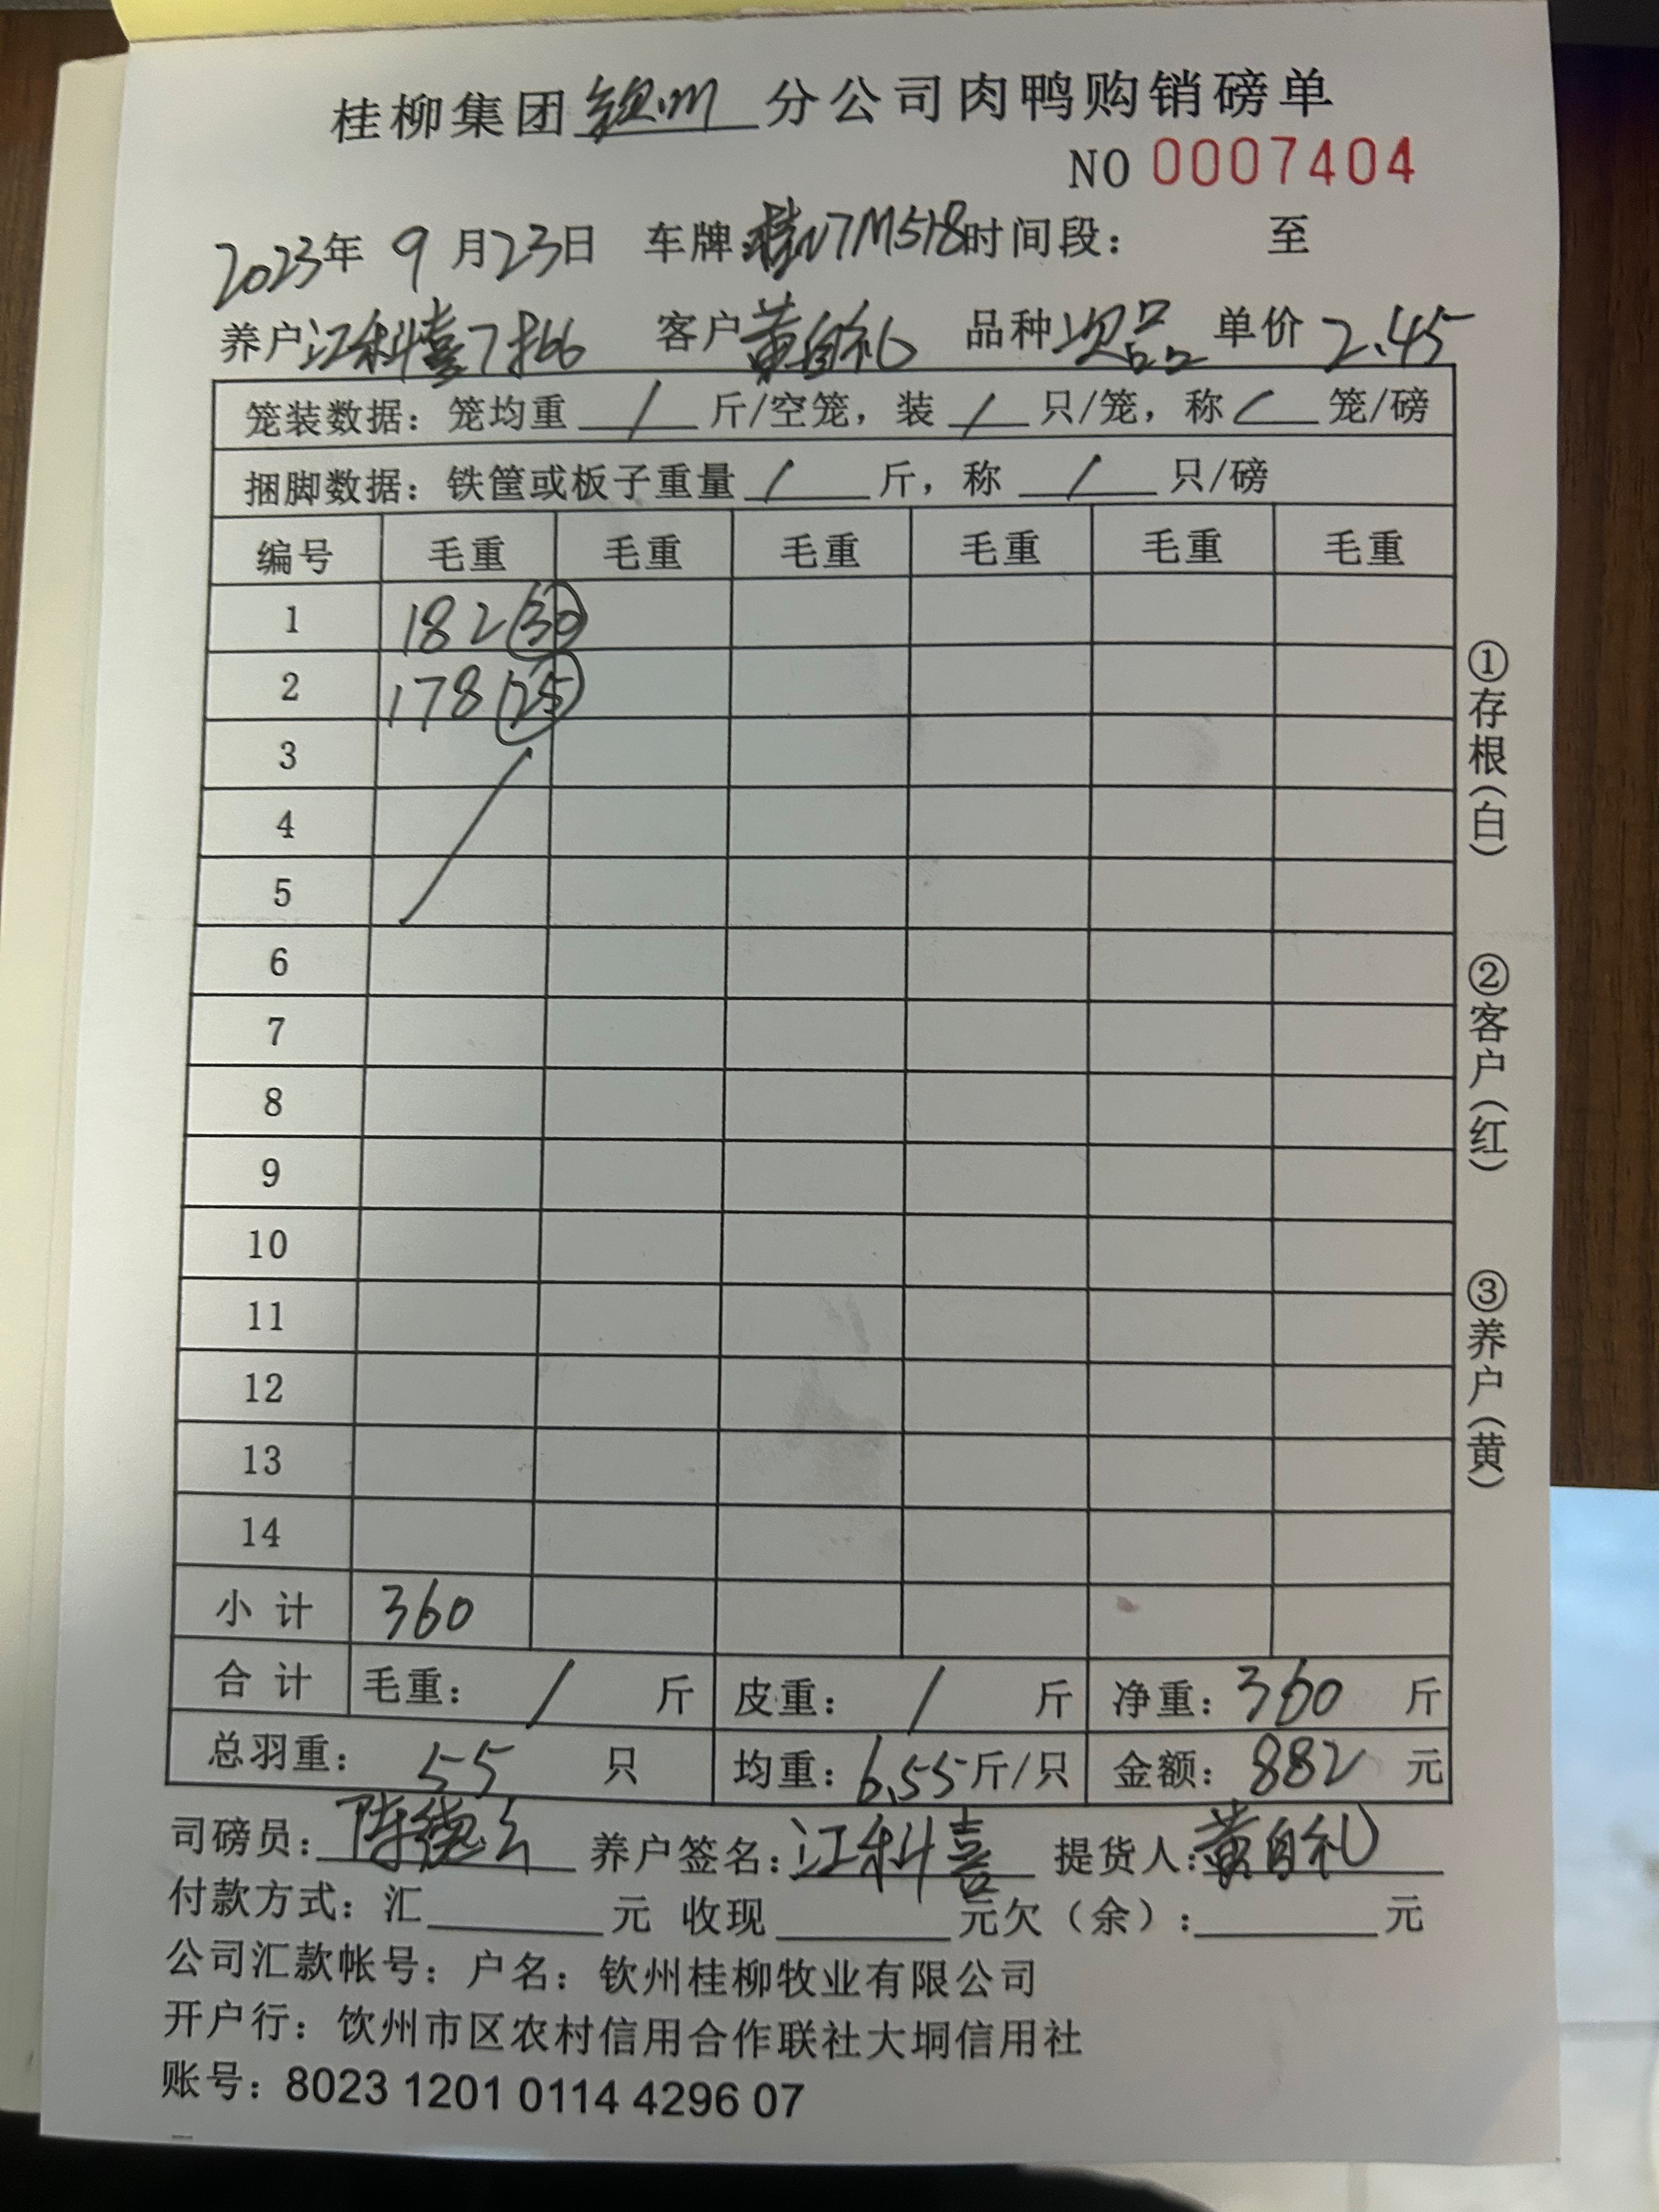 桂柳集团钦州分公司肉鸭购销磅单
NO 0007404
2023年 9月23日 车牌:桂N7M518时间段: 至
养户江科喜7批 客户黄自礼 品种次品 单价2.45
笼装数据:笼均重 / 斤/空笼,装 / 只/笼,称 / 笼/磅
捆脚数据:铁筐或板子重量 / 斤,称 / 只/磅
编号 毛重 毛重 毛重 毛重 毛重 毛重
1 182(30)
2 178(25)
3
4
5
6
7
8
9
10
11
12
13
14
小计 360
合计 毛重: / 斤 皮重: / 斤 净重:360 斤
总羽重: 55 只 均重:6.55斤/只 金额:882 元
司磅员: 养户签名:江科喜 提货人:黄自礼
付款方式:汇 元 收现 元欠(余): 元
公司汇款帐号:户名:钦州桂柳牧业有限公司
开户行:钦州市区农村信用合作联社大垌信用社
账号:8023 1201 0114 4296 07
①存根(白)
②客户(红)
③养户(黄)